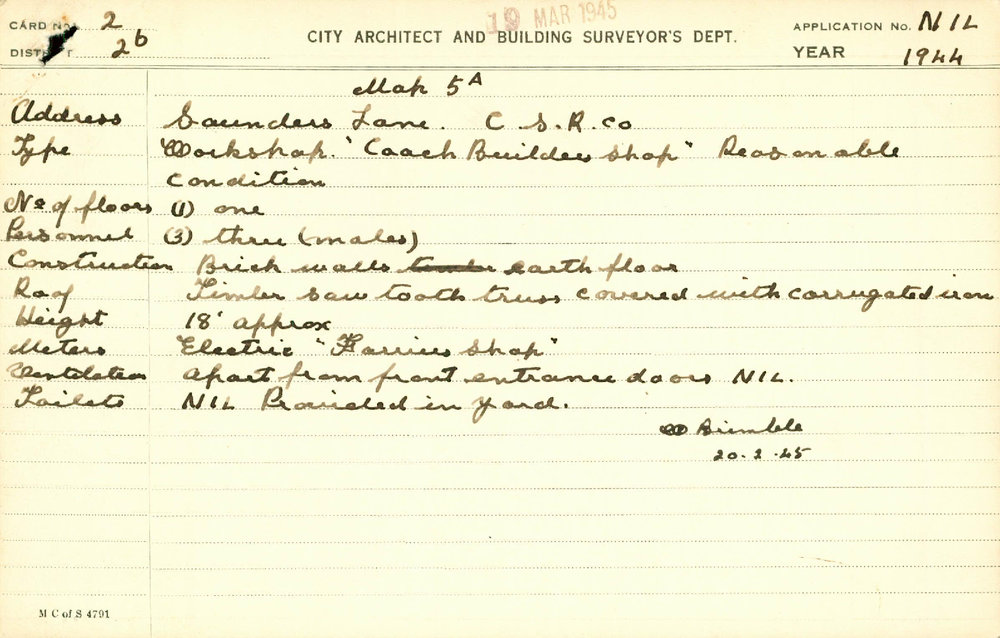 19 MAR 1945
CARD No. 2
CITY ARCHITECT AND BUILDING SURVEYOR'S DEPT.
APPLICATION No. NIL
DISTRICT 2b
YEAR 1944
Map 5A
Address Saunders Lane. C.S.R. Co
Type Workshop. "Coach Builder Shop" Reasonable
condition
No of floors (1) one
Personnel (3) three (males)
Construction Brick walls timber earth floor
Roof Timber saw tooth truss covered with corrugated iron
Height 18' approx
Meters Electric "Farriers Shop"
Ventilation apart from front entrance doors NIL.
Toilets NIL Provided in yard.
Brimble
20.2.45
M C of S 4791